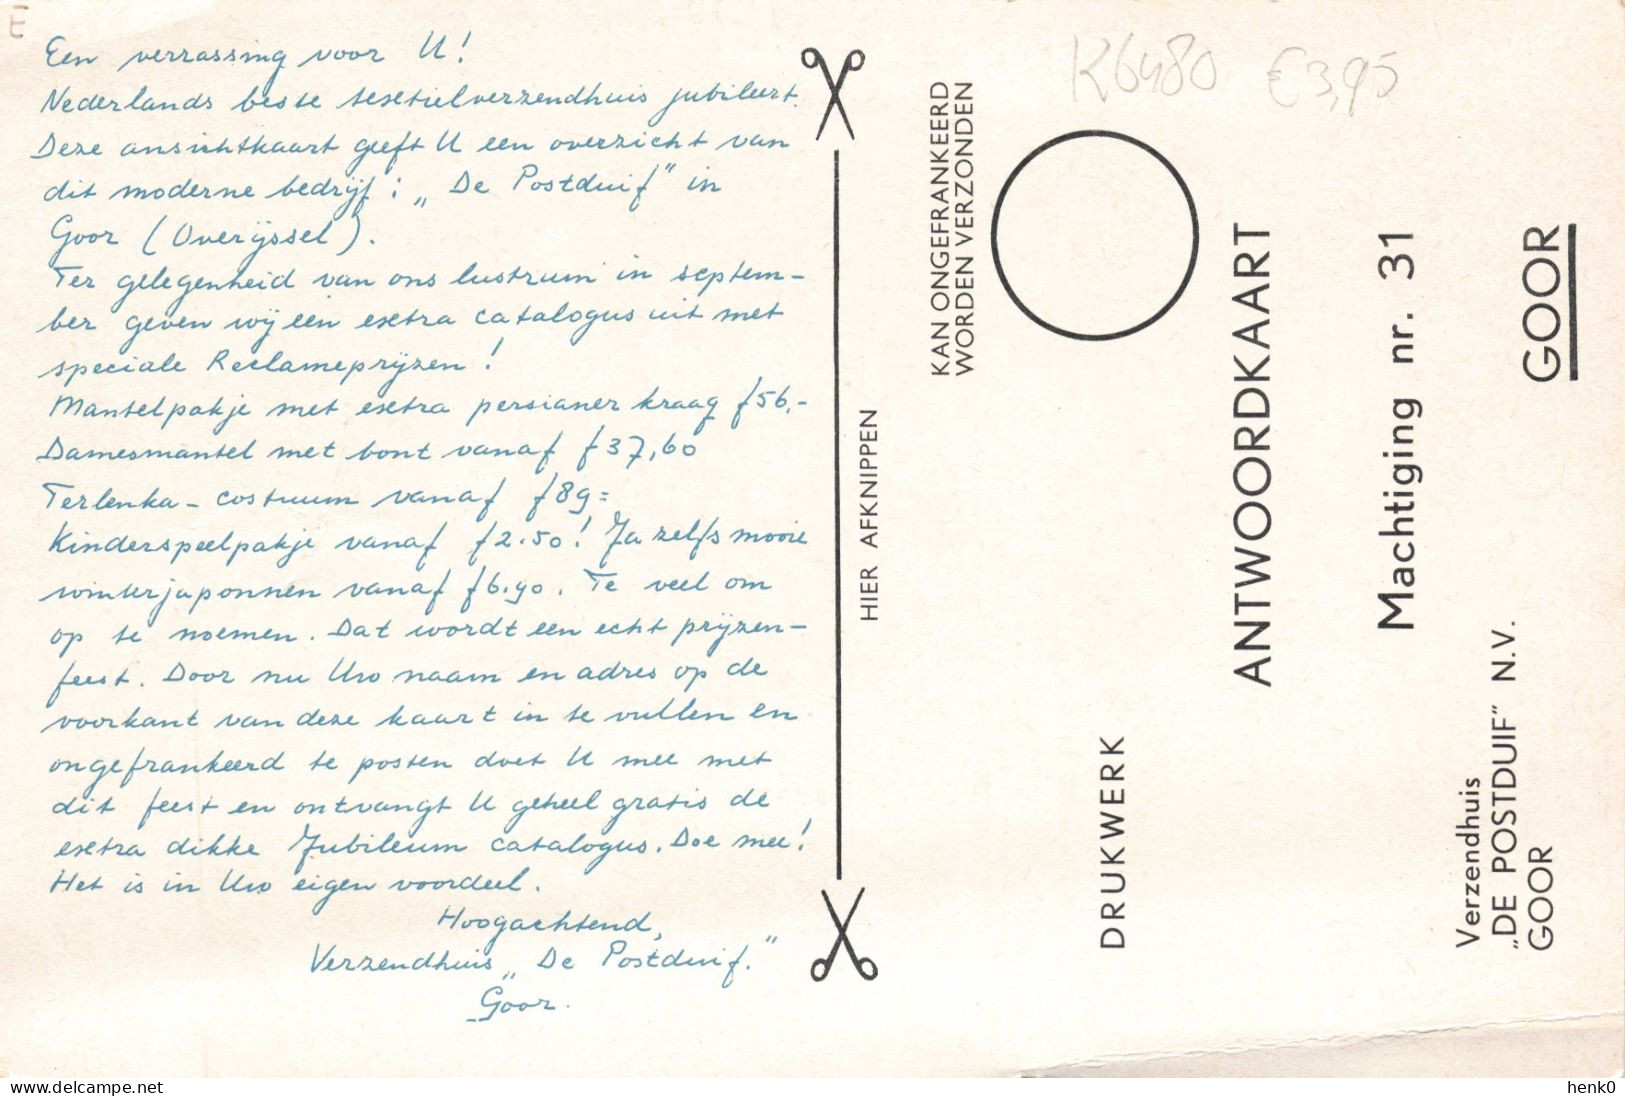 Een verrassing voor U!
Nederlands beste textielverzendhuis jubileert.
Deze ansichtkaart geeft U een overzicht van
dit moderne bedrijf: „De Postduif" in
Goor (Overijssel).
Ter gelegenheid van ons lustrum in septem-
ber geven wij een extra catalogus uit met
speciale Reclameprijzen!
Mantelpakje met extra persianer kraag f56,-
Damesmantel met bont vanaf f37,60
Terlenka-costuum vanaf f89=
Kinderspeelpakje vanaf f2.50! Ja zelfs mooie
winterjaponnen vanaf f6.90. Te veel om
op te noemen. Dat wordt een echt prijzen-
feest. Door nu Uw naam en adres op de
voorkant van deze kaart in te vullen en
ongefrankeerd te posten doet U mee met
dit feest en ontvangt U geheel gratis de
extra dikke Jubileum catalogus. Doe mee!
Het is in Uw eigen voordeel.
Hoogachtend,
Verzendhuis „De Postduif."
Goor.
HIER AFKNIPPEN
K6480 €3,95
KAN ONGEFRANKEERD
WORDEN VERZONDEN
DRUKWERK
ANTWOORDKAART
Machtiging nr. 31
Verzendhuis
„DE POSTDUIF" N.V.
GOOR
GOOR
www.delcampe.net
henk0